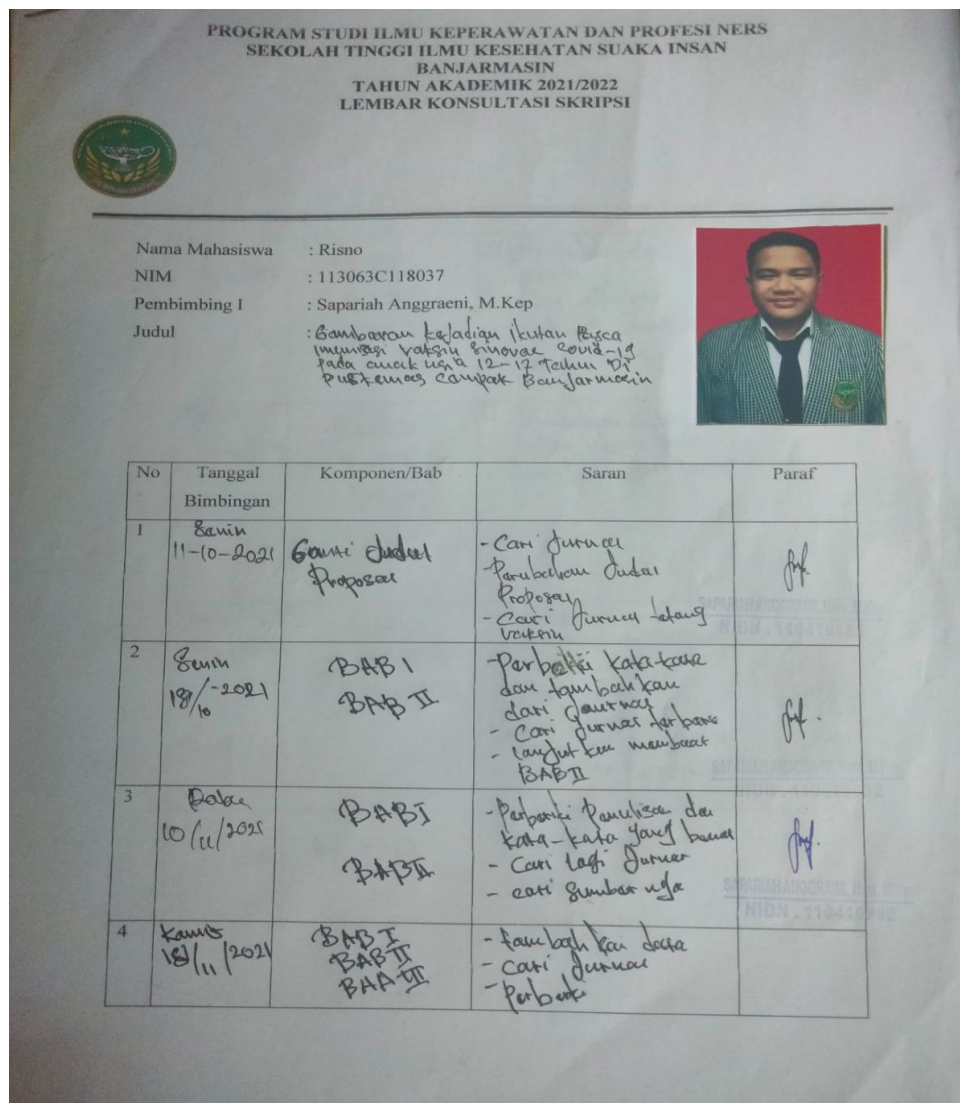 PROGRAM STUDI ILMU KEPERAWATAN DAN PROFESI NERS
SEKOLAH TINGGI ILMU KESEHATAN SUAKA INSAN
BANJARMASIN
TAHUN AKADEMIK 2021/2022
LEMBAR KONSULTASI SKRIPSI
Nama Mahasiswa : Risno
NIM : 113063C118037
Pembimbing I : Sapariah Anggraeni, M.Kep
Judul : Gambaran kejadian ikutan Pasca
imunisasi vaksin Sinovac Covid-19
pada anak usia 12-17 Tahun Di
Puskemas Campak Banjarmasin
No Tanggal Bimbingan Komponen/Bab Saran Paraf
1 Senin
11-10-2021
Ganti Judul
Proposal
- Cari Jurnal
- Perubahan Judul
Proposal
- Cari Jurnal tetang
vaksin
2 Senin
18/10-2021
BAB I
BAB II
- Perbaiki kata-kata
dan tambahkan
dari Journal
- Cari Jurnal terbaru
- lanjutkan membuat
BAB II
3 Rabu
10/11/2021
BAB I
BAB II
- Perbaiki Penulisan dan
kata-kata yang benar
- Cari lagi Jurnal
- cari sumber nya
SAPARIAH ANGGRAENI
NIDN.
4 Kamis
18/11/2021
BAB I
BAB II
BAB III
- tambahkan data
- Cari Jurnal
- Perbaiki